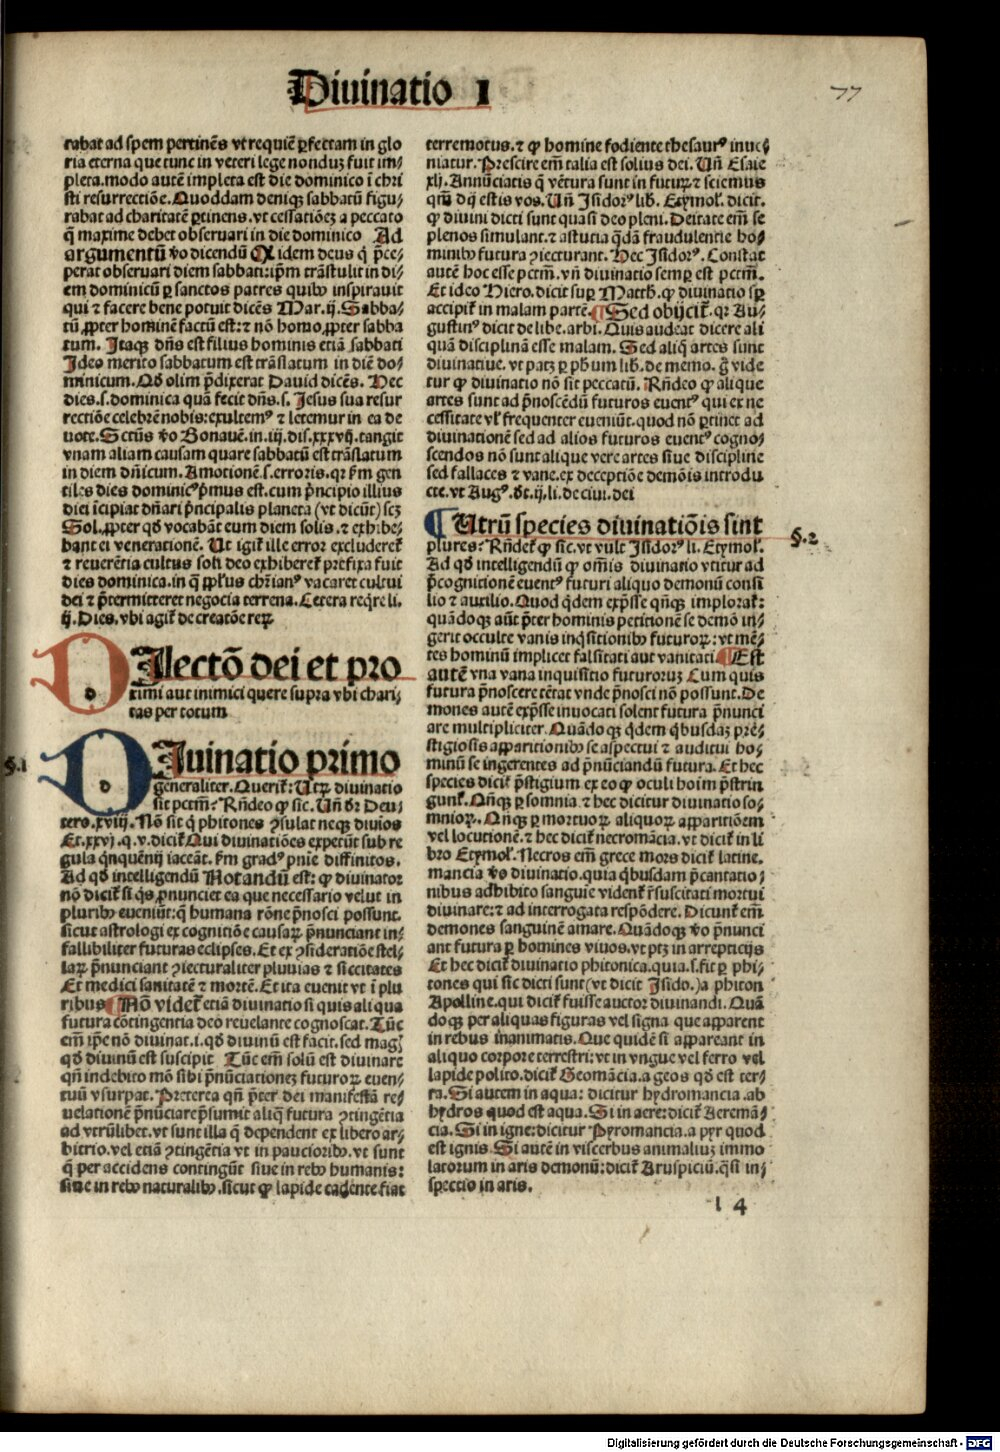 Diuinatio I
77
rabat ad spem pertinẽs vt requiẽ ꝑfectam in glo
ria eterna que tunc in veteri lege nonduꝫ fuit im⸗
pleta. modo autẽ impleta est die dominico ĩ chri
sti resurrectiõe. Quoddam deniqꝫ sabbatũ figu⸗
rabat ad charitatẽ ꝑtinens. vt cessatiõeꝫ a peccato
q̃ maxime debet obseruari in die dominico Ad
argumentũ v̓o dicendũ Qꝛ idem deus q̃ p̃ce⸗
perat obseruari diem sabbati: ip̃m trãstulit in di⸗
em dominicũ ꝑ sanctos patres quibꝰ inspirauit
qui ⁊ facere bene potuit dicẽs Mar. ij. Sabba⸗
tũ ꝓpter hominẽ factũ est: ⁊ nõ homo ꝓpter sabba
tum. Itaqꝫ dñs est filius hominis etiã sabbati
Ideo merito sabbatum est trãslatum in diẽ do⸗
minicum. Qd̓ olim p̃dixerat Dauid dicẽs. Hec
dies. s. dominica quã fecit dñs. s. Jesus sua resur
rectiõe celebrẽ nobis: exultemꝰ ⁊ letemur in ea de
uote. Sctũs v̓o Bonauẽ. in. iij. dis. xxxvij. tangit
vnam aliam causam quare sabbatũ est trãslatum
in diem dñicum. Amotionẽ. s. erroris. qꝛ ẜm gen
tiles dies dominicꝰ p̃mus est. cum p̃ncipio illius
diei ĩcipiat dñari p̃ncipalis planeta (vt dicũt) scꝫ
Sol. ꝓpter qd̓ vocabãt eum diem solis. ⁊ exhibe⸗
bant ei venerationẽ. Ut igit̃ ille error excluderet̃
⁊ reuerẽtia cultus soli deo exhiberet̃ prefixa fuit
dies dominica. in q̃ ꝓpl̓us chr̃ianꝰ vacaret cultui
dei ⁊ p̃termitteret negocia terrena. Cetera req̃re li.
ij. Dies. vbi agit̃ de creatõe reꝝ
DIlectõ dei et pro
ximi aut inimici quere supra vbi chari⸗
tas per totum
§.1
DIuinatio primo
generaliter. Querit̃: Utꝝ diuinatio
sit pctm̃? Rñdeo ꝙ sic. Uñ d̓r Deu⸗
tero. xviij. Nõ sit q̃ phitones ꝯsulat neqꝫ diuĩos
Et. xxvj. q. v. dicit̃ Qui diuinatiões expetũt sub re
gula q̃nquẽnij iaceãt. ẜm gradꝰ pnĩe diffinitos.
Ad qd̓ intelligendũ Notandũ est: ꝙ diuinator
nõ dicit̃ si q̃s p̃nunciet ea que necessario velut in
pluribꝰ eueniũt: q̃ humana rõne p̃nosci possunt.
sicut astrologi ex cognitiõe causaꝝ p̃nunciant in⸗
fallibiliter futuras eclipses. Et ex ꝯsideratiõe stel⸗
laꝝ p̃nunciant ꝯiecturaliter pluuias ⁊ siccitates
Et medici sanitatẽ ⁊ mortẽ. Et ita euenit vt ĩ plu
ribus Nõ videt̃ etiã diuinatio si quis aliqua
futura cõtingentia deo reuelante cognoscat. Tũc
em̃ ip̃e nõ diuinat. i. qd̓ diuinũ est facit. sed magꝭ
qd̓ diuinũ est suscipit Tũc em̃ solũ est diuinare
qñ indebito mõ sibi p̃nũciationeꝫ futuroꝝ euen⸗
tuũ vsurpat. Preterea qñ p̃ter dei manifestã re⸗
uelationẽ p̃nũciare p̃sumit aliq̃ futura ꝯtingẽtia
ad vtrũlibet. vt sunt illa q̃ dependent ex libero ar⸗
bitrio. vel etiã ꝯtingẽtia vt in paucioribꝰ. vt sunt
q̃ per accidens contingũt siue in rebꝰ humanis:
siue in rebꝰ naturalibꝰ. sicut ꝙ lapide cadente fiat
terremotus. ⁊ ꝙ homine fodiente thesaurꝰ inue⸗
niatur. Prescire em̃ talia est solius dei. Uñ Esaie
xlj. Annũciatis q̃ vẽtura sunt in futuꝝ ⁊ sciemus
qm̃ dij estis vos. Uñ Isidorꝰ lib. Etymol̓. dicit.
ꝙ diuini dicti sunt quasi deo pleni. Deitate em̃ se
plenos simulant. ⁊ astutia q̃dã fraudulentie ho⸗
minibꝰ futura ꝯiecturant. Hec Isidorꝰ. Constat
autẽ hoc esse pctm̃. vñ diuinatio semꝑ est pctm̃.
Et ideo Hiero. dicit suꝑ Matth. ꝙ diuinatio sꝑ
accipit̃ in malam partẽ. Sed obijcit̃. qꝛ Au⸗
gustinꝰ dicit de libe. arbi. Quis audeat dicere ali
quã disciplinã esse malam. Sed aliq̃ artes sunt
diuinatiue. vt patꝫ ꝑ ph̃um lib. de memo. g̃ vide
tur ꝙ diuinatio nõ sit peccatũ. Rñdeo ꝙ alique
artes sunt ad p̃noscẽdũ futuros euentꝰ qui ex ne
cessitate vl̓ frequenter eueniũt. quod nõ ꝑtinet ad
diuinationẽ sed ad alios futuros euentꝰ cogno⸗
scendos nõ sunt alique vere artes siue discipline
sed fallaces ⁊ vane. ex deceptiõe demõis introdu
cte. vt Augꝰ. d̓t. ij. li. de ciui. dei
¶ Utrũ species diuinatiõis sint
§.2
plures? Rñdet̃ ꝙ sic. vt vult Isidorꝰ li. Etymol̓.
Ad qd̓ intelligendũ ꝙ om̃is diuinatio vtitur ad
p̃cognitionẽ euentꝰ futuri aliquo demonũ consi
lio ⁊ auxilio. Quod q̃dem exp̃sse qñqꝫ implorat̃:
quãdoqꝫ aũt p̃ter hominis petitionẽ se demõ in⸗
gerit occulte vanis inq̃sitionibꝰ futuroꝝ: vt mẽ⸗
tes hominũ implicet falsitati aut vanitati. Est
autẽ vna vana inquisitio futuroruꝫ Cum quis
futura p̃noscere tẽtat vnde p̃nosci nõ possunt. De
mones autẽ exp̃sse inuocati solent futura p̃nunci
are multipliciter. Quãdoqꝫ q̃dem q̃busdaꝫ pre⸗
stigiosis apparitionibꝰ se aspectui ⁊ auditui ho⸗
minũ se ingerentes ad p̃nũciandũ futura. Et hec
species dicit̃ p̃stigium ex eo ꝙ oculi hoĩm p̃strin
gunt̃. Qñqꝫ ꝑ somnia. ⁊ hec dicitur diuinatio so⸗
mnioꝝ. Qñqꝫ ꝑ mortuoꝝ aliquoꝝ apparitiõem
vel locutionẽ. ⁊ hec dicit̃ necromãcia. vt dicit̃ in li
bro Etymol̓. Necros em̃ grece mors dicit̃ latine.
mancia v̓o diuinatio. quia q̃busdam p̃cantatio⸗
nibus adhibito sanguie vident̃ r̃suscitati mortui
diuinare: ⁊ ad interrogata respõdere. Dicunt̃ em̃
demones sanguinẽ amare. Quãdoqꝫ v̓o p̃nunci
ant futura ꝑ homines viuos. vt ptꝫ in arrepticijs
Et hec dicit̃ diuinatio phitonica. quia. s. fit ꝑ phi⸗
tones qui sic dicti sunt (vt dicit Isido.) a phiton
Apolline. qui dicit̃ fuisse auctor diuinandi. Quã
doqꝫ per aliquas figuras vel signa que apparent
in rebus inanimatis. Que quidẽ si appareant in
aliquo corpore terrestri: vt in vngue vel ferro vel
lapide polito. dicit̃ Geomãcia. a geos qd̓ est ter⸗
ra. Si autem in aqua: dicitur hydromancia. ab
hydros quod est aqua. Si in aere: dicit̃ Aeremã⸗
cia. Si in igne: dicitur Pyromancia. a pyr quod
est ignis. Si autẽ in visceribus animaliuꝫ immo
latorum in aris demonũ: dicit̃ Aruspiciũ. q̃si in⸗
spectio in aris.
l 4
Digitalisierung gefördert durch die Deutsche Forschungsgemeinschaft - DFG